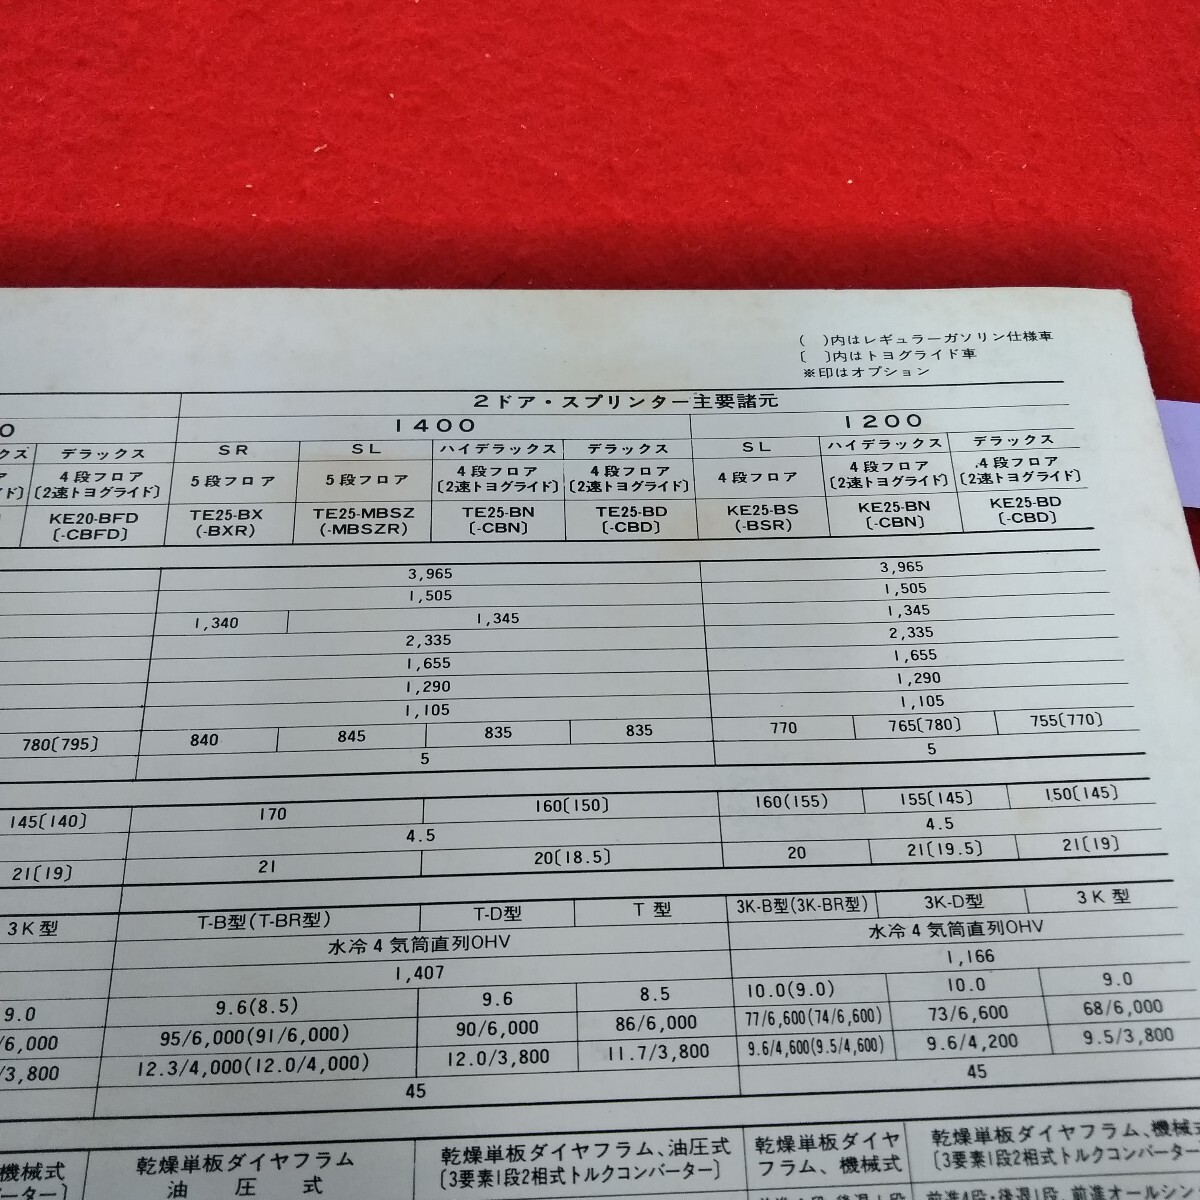 ( )内はレギュラーガソリン仕様車
〔 〕内はトヨグライド車
※印はオプション
2ドア・スプリンター主要諸元
0 1400 1200
クス デラックス SR SL ハイデラックス デラックス SL ハイデラックス デラックス
4段フロア 5段フロア 5段フロア 4段フロア 4段フロア 4段フロア 4段フロア 4段フロア
イド〕 〔2速トヨグライド〕 〔2速トヨグライド〕 〔2速トヨグライド〕 〔2速トヨグライド〕 〔2速トヨグライド〕
KE20-BFD TE25-BX TE25-MBSZ TE25-BN TE25-BD KE25-BS KE25-BN KE25-BD
〔-CBFD〕 (-BXR) (-MBSZR) 〔-CBN〕 〔-CBD〕 (-BSR) 〔-CBN〕 〔-CBD〕
3,965 3,965
1,505 1,505
1,340 1,345 1,345
2,335 2,335
1,655 1,655
1,290 1,290
1,105 1,105
780〔795〕 840 845 835 835 770 765〔780〕 755〔770〕
5 5
145〔140〕 170 160〔150〕 160(155) 155〔145〕 150〔145〕
4.5 4.5
21〔19〕 21 20〔18.5〕 20 21〔19.5〕 21〔19〕
3K型 T-B型(T-BR型) T-D型 T型 3K-B型(3K-BR型) 3K-D型 3K型
水冷4気筒直列OHV 水冷4気筒直列OHV
1,407 1,166
9.0 9.6(8.5) 9.6 8.5 10.0(9.0) 10.0 9.0
/6,000 95/6,000(91/6,000) 90/6,000 86/6,000 77/6,600(74/6,600) 73/6,600 68/6,000
/3,800 12.3/4,000(12.0/4,000) 12.0/3,800 11.7/3,800 9.6/4,600(9.5/4,600) 9.6/4,200 9.5/3,800
45 45
機械式 乾燥単板ダイヤフラム 乾燥単板ダイヤフラム、油圧式 乾燥単板ダイヤ 乾燥単板ダイヤフラム、機械式
ーター〕 油圧式 〔3要素1段2相式トルクコンバーター〕 フラム、機械式 〔3要素1段2相式トルクコンバーター